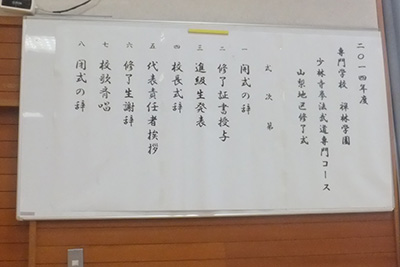 二〇一四年度
専門学校 禅林学園
少林寺拳法武道専門コース
山梨地区修了式
式次第
一 開式の辞
二 修了証書授与
三 進級生発表
四 校長式辞
五 代表責任者挨拶
六 修了生謝辞
七 校歌斉唱
八 閉式の辞